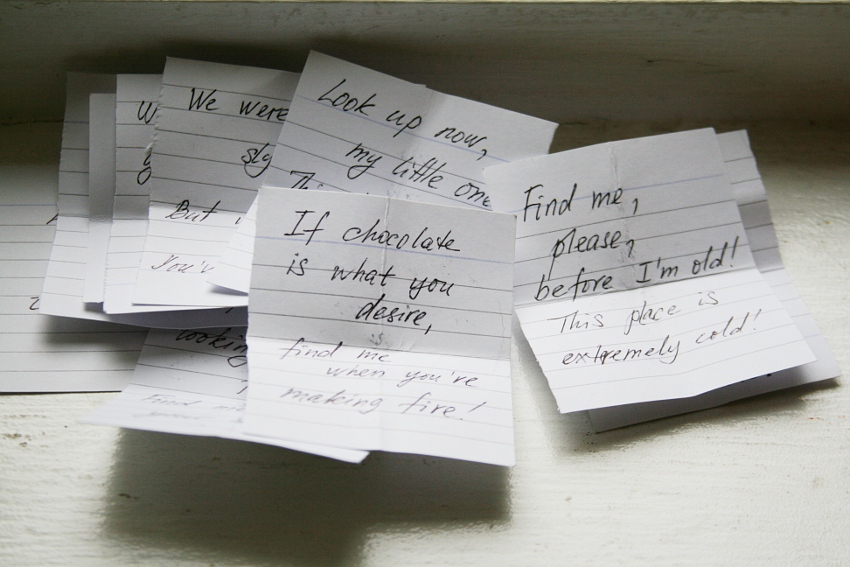 We were
sly
But
You'v
Look up now,
my little one
Thi
If chocolate
is what you
desire,
find me
when you're
making fire!
Find me,
please,
before I'm old!
This place is
extremely cold!
looking
find me